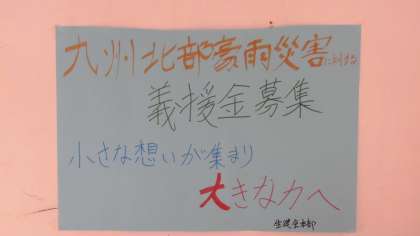 九州北部豪雨災害に対する
義援金募集
小さな想いが集まり
大きな力へ
生徒会本部